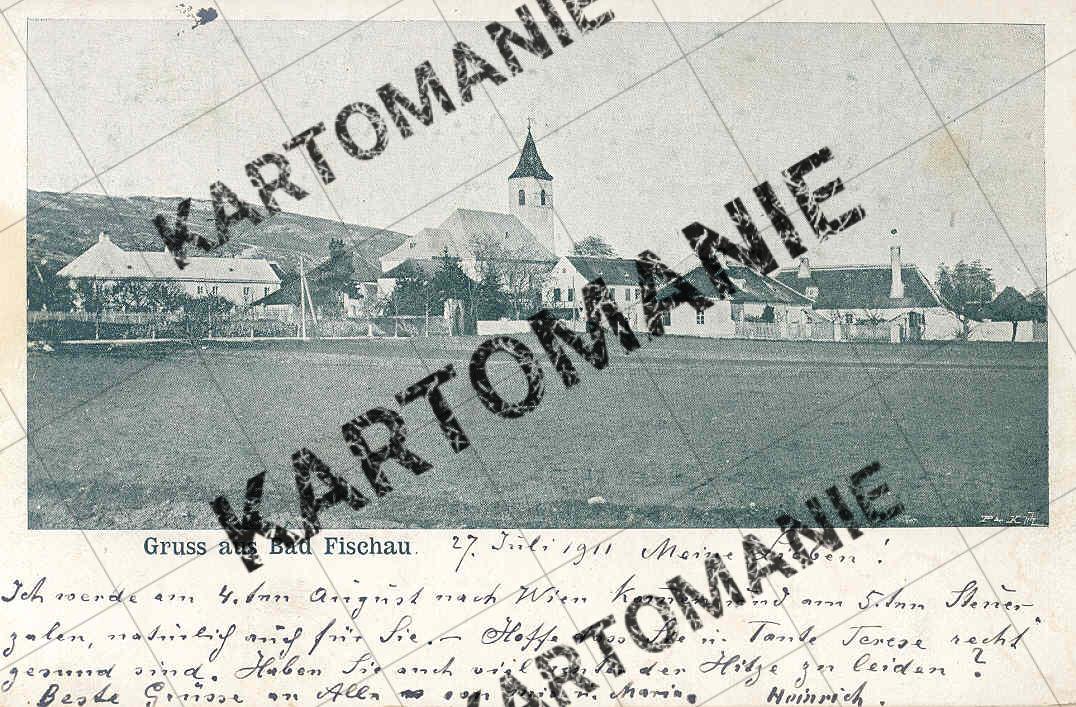 KARTOMANIE
KARTOMANIE
KARTOMANIE
Gruss aus Bad Fischau. 27. Juli 1911 Meine Lieben!
Ich werde am 4.ten August nach Wien kommen und am 5.ten Steuer
zalen, natürlich auch für Sie. – Hoffe dass Sie u. Tante Terese recht
gesund sind. Haben Sie auch viel unter der Hitze zu leiden?
Beste Grüsse an Alle von mir u. Maria. Heinrich.